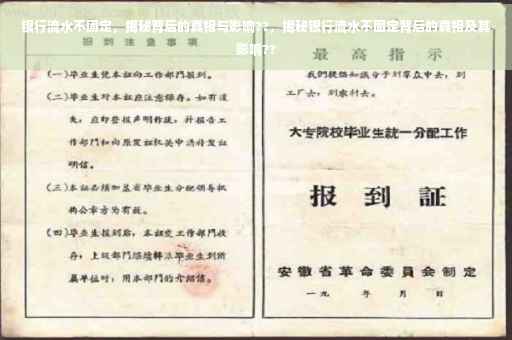 银行流水不固定，揭秘背后的真相与影响??，揭秘银行流水不固定背后的真相及其
影响??
报到注意事项
(一)毕业生凭本证向工作部门报到。
(二)毕业生对本证应注意保存。如有遗
失，应即登报声明作废，并报告工
作部门和向原发证机关申请补发证
明信。
(三)本证必须加盖省毕业生分配领导机
构公章方为有效。
(四)毕业生报到后，本证交工作部门收
存；上级部门继续转派毕业生到所
属单位时，用本部门的介绍信。
最高指示
我们提倡知识分子到群众中去，到
工厂去，到农村去。
大专院校毕业生统一分配工作
报到证
安徽省革命委员会制定
一九 年 月 日